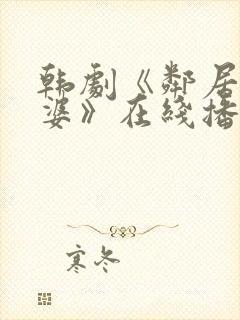 韩劇《鄰居
婆》在綫播
寒冬